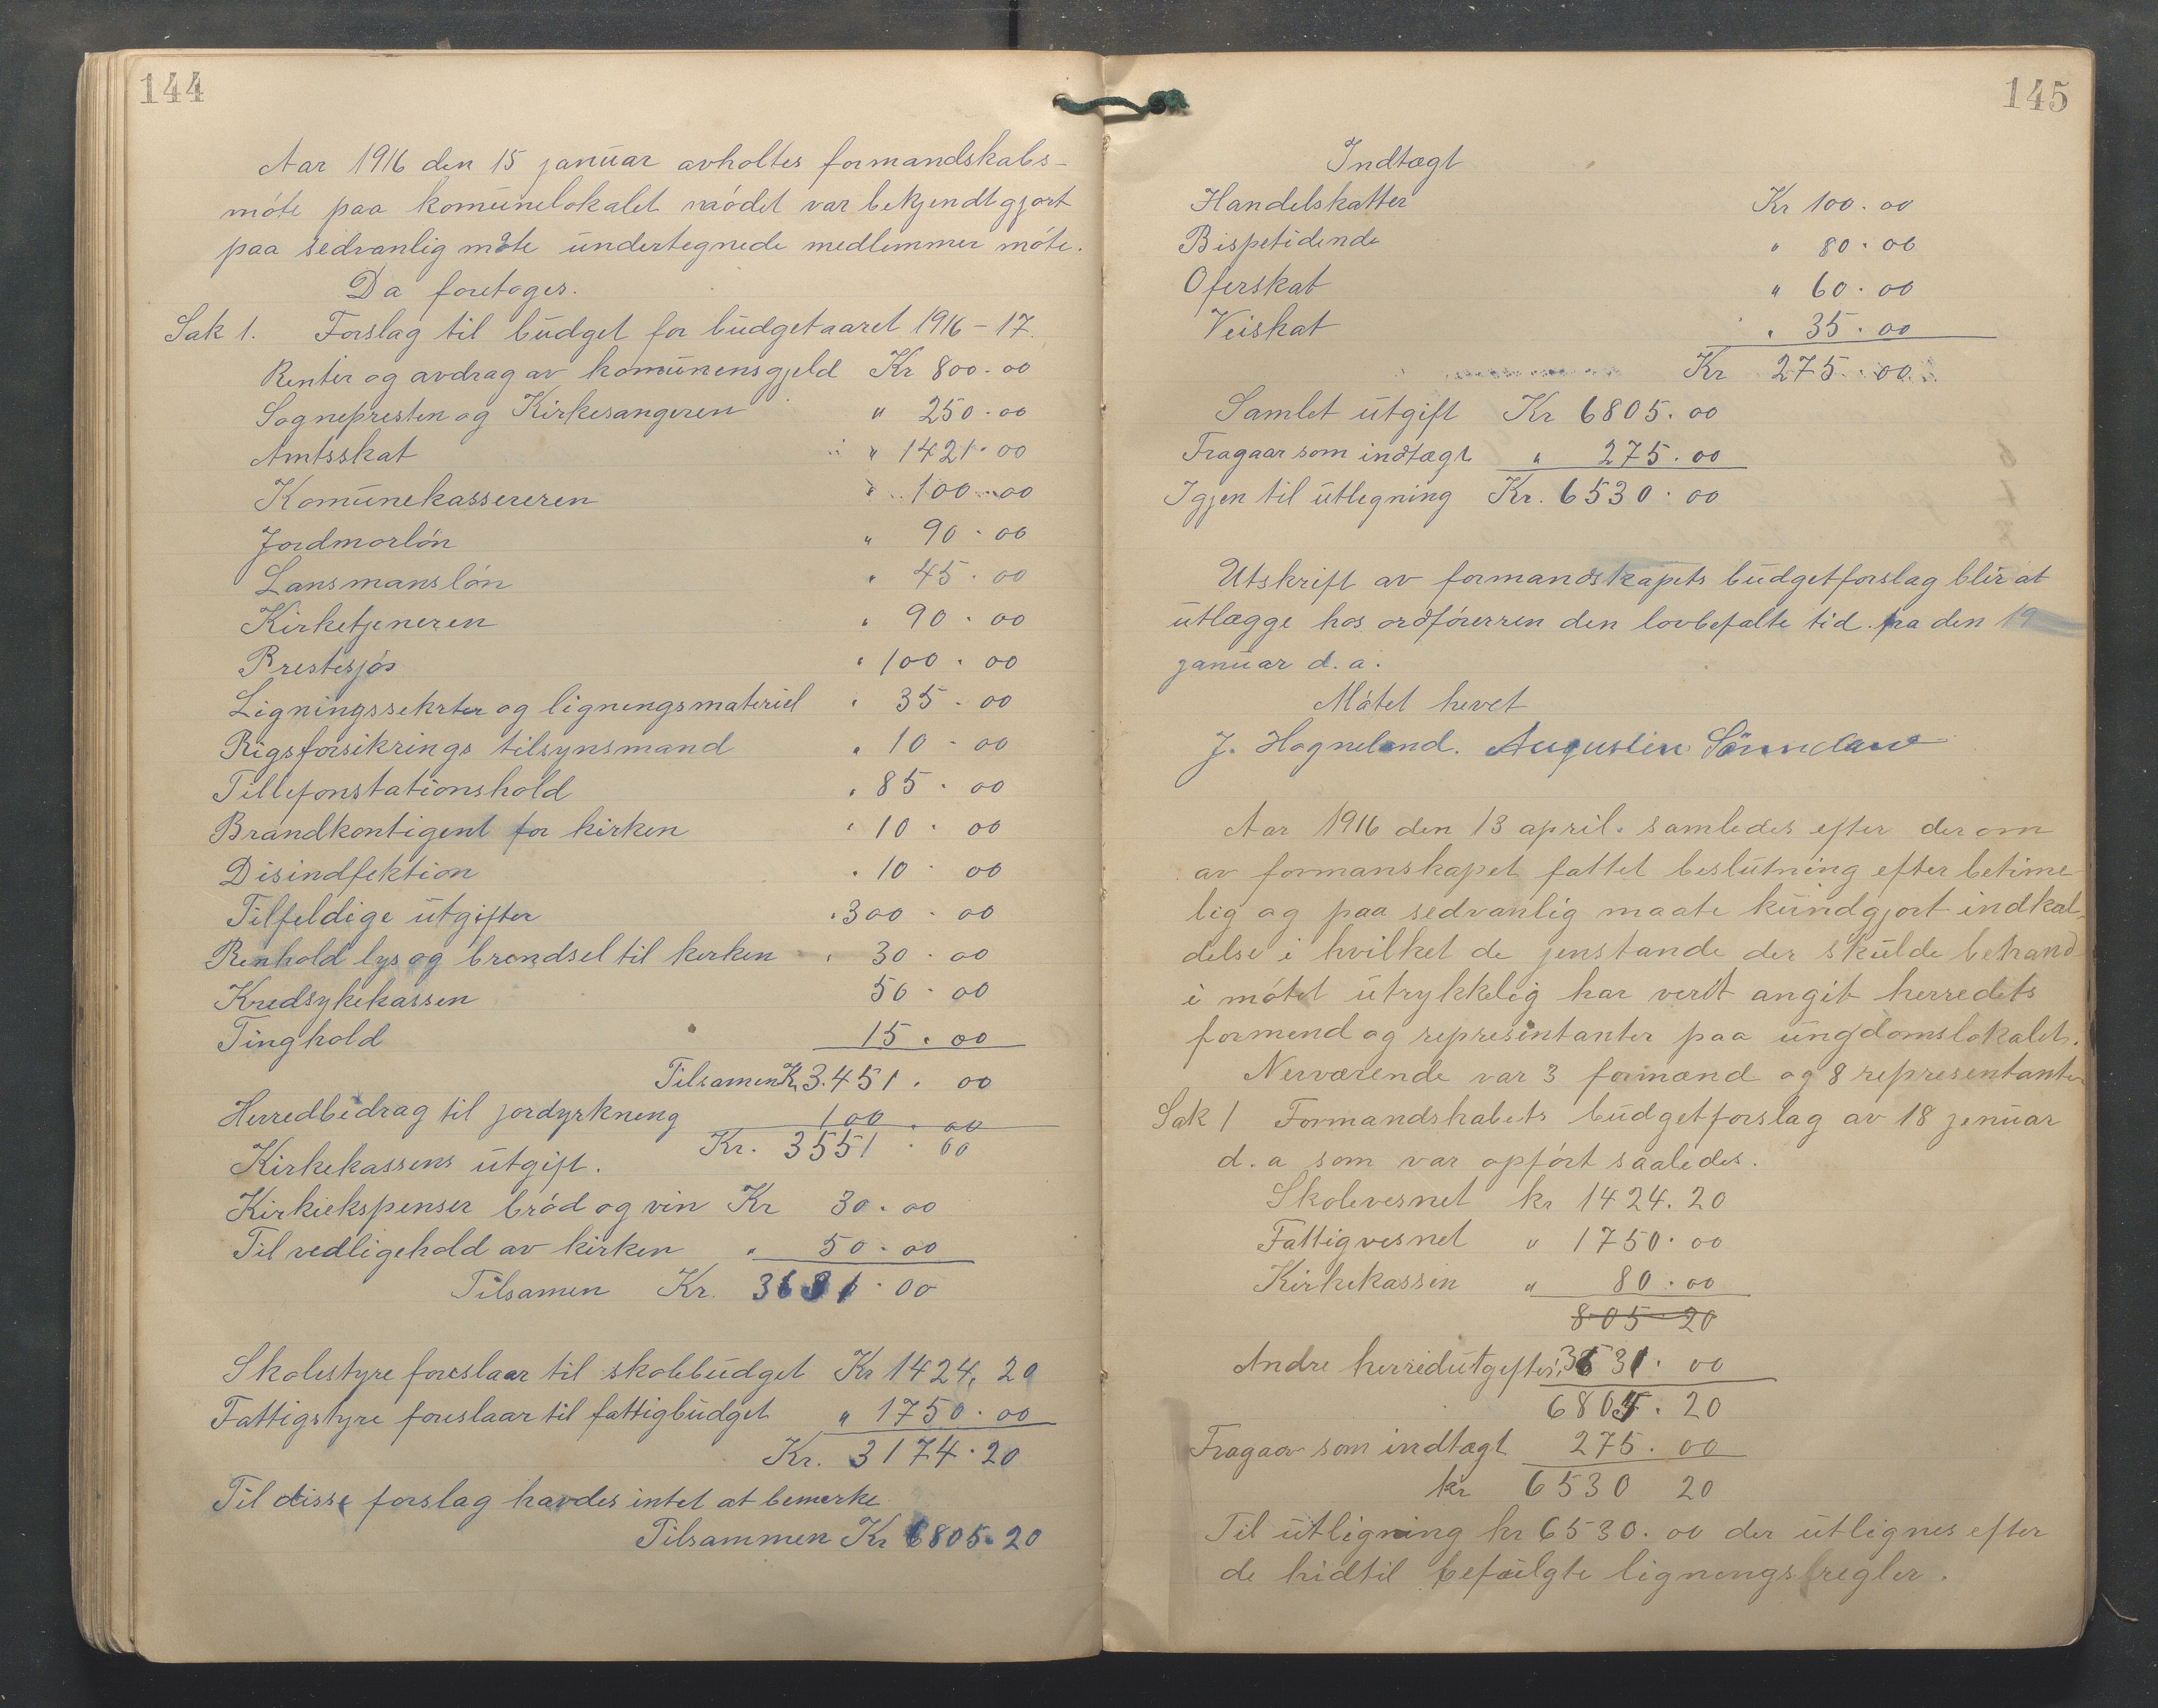 144
Aar 1916 den 15 januar avholtes formandskabs-
móte paa komünelokalet módet var bekjendtgjort
paa sedvanlig måte ündertegnede medlemmer móte.
Da foretoges.
Sak 1. Forslag til büdget for büdgetaaret 1916-17.
Renter og avdrag av komünensgjeld Kr 800.00
Sognepresten og Kirkesangeren " 250.00
Amtsskat " 1421.00
Komünekassereren " 100.00
Jordmorlón " 90.00
Lansmanslón " 45.00
Kirketjeneren " 90.00
Prestesjós " 100.00
Ligningssekrter og ligningsmateriel " 35.00
Rigsforsikrings tilsynsmand " 10.00
Tillefonstationshold " 85.00
Brandkontigent for kirken " 10.00
Disindfektion " 10 00
Tilfeldige ütgifter " 300.00
Renhold lys og brendsel til kirken " 30.00
Kredsykekassen 50.00
Tinghold 15.00
Tilsamen Kr 3.451.00
Herredbidrag til jordyrkning 100.00
Kr. 3551.00
Kirkekassens ütgift.
Kirkiekspenser bród og vin Kr 30.00
Til vedligehold av kirken " 50.00
Tilsamen Kr. 3631.00
Skolestyre foreslaar til skolebüdget Kr 1424,20
Fattigstyre foreslaar til fattigbüdget " 1750.00
Kr. 3174.20
Til disse forslag havdes intet at bemerke
Tilsammen Kr 6805.20
145
Indtægt
Handelskatter Kr 100.00
Bispetidende " 80.00
Oferskat " 60.00
Veiskat " 35.00
Kr 275.00
Samlet ütgift Kr 6805.00
Fragaar som indtægt " 275.00
Igjen til ütlegning Kr. 6530.00
Utskrift av formandskapets büdgetforslag blir at
ütlægge hos ordfórerren den lovbefalte tid fra den 19
januar d.a.
Mótet hevet
J. Hogneland. Augustin
Aar 1916 den 13 april. samledes efter der om
av formanskapet fattet beslütning efter betime
lig og paa sedvanlig maate kündgjort indkal-
delse i hvilket de jenstande der skülde behand
i mótet ütrykkelig har verit angit herredets
formend og representanter paa üngdomslokalet.
Nerværende var 3 formænd og 8 representanter
Sak 1 Formandskabets büdgetforslag av 18 januar
d.a som var opfórt saaledes.
Skolevesnet kr 1424.20
Fattigvesnet " 1750.00
Kirkekassen " 80.00
805.20
Andre herredütgifter 3631.00
6805.20
Fragaar som indtægt 275.00
kr 6530 20
Til ütligning kr 6530.00 der ütlignes efter
de hidtil befülgte ligningsregler.